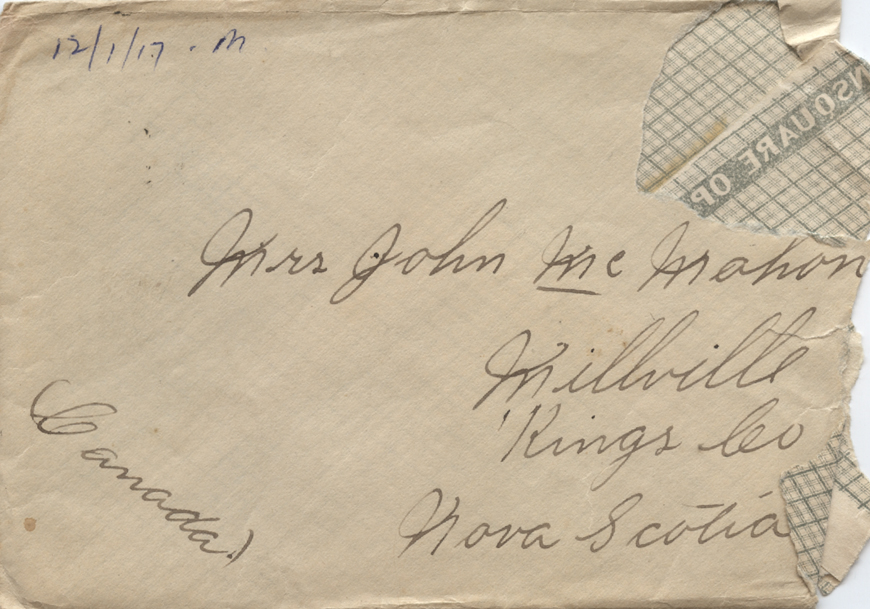 12/1/17 . M
NSQUARE OP
Mrs John Mc Mahon
Millville
Kings Co
Nova Scotia
(Canada)